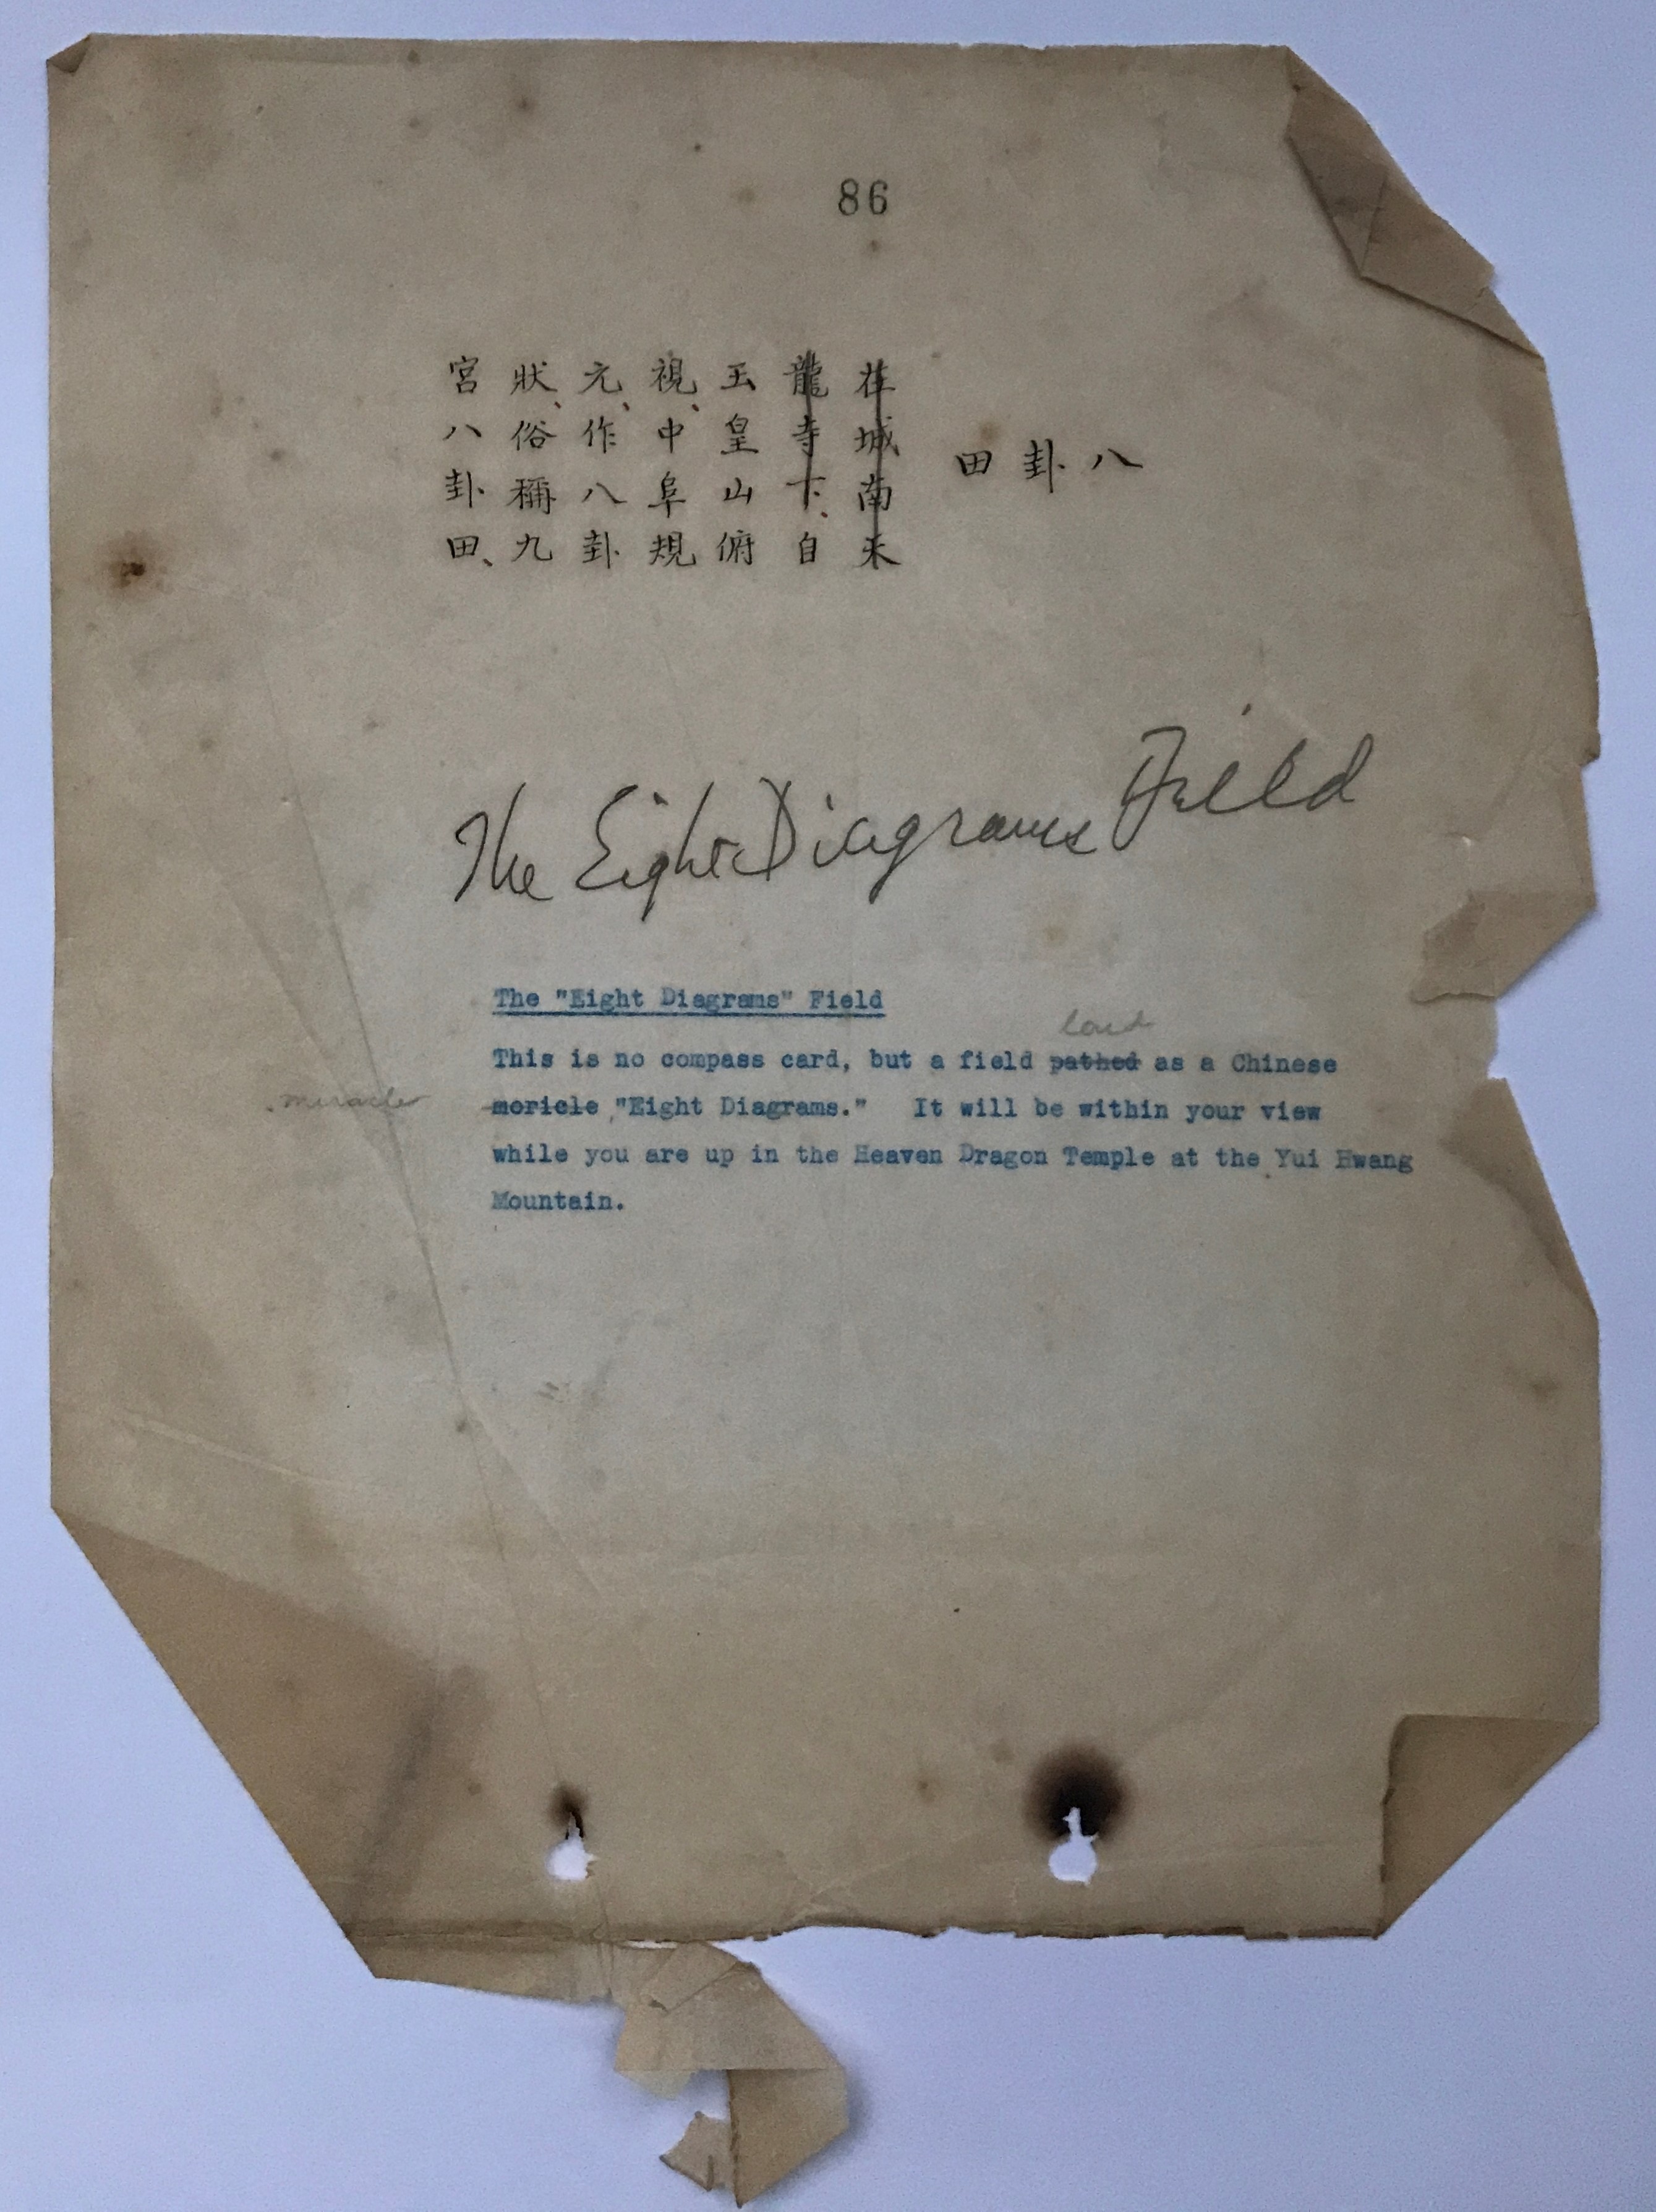 86
八卦田
在城南天
龍寺下、自
玉皇山俯
視、中阜規
元、作八卦
狀、俗稱九
宮八卦田、
The Eight Diagrams Field
The "Eight Diagrams" Field
laid
This is no compass card, but a field pathed as a Chinese
miracle
moricle "Eight Diagrams." It will be within your view
while you are up in the Heaven Dragon Temple at the Yui Hwang
Mountain.